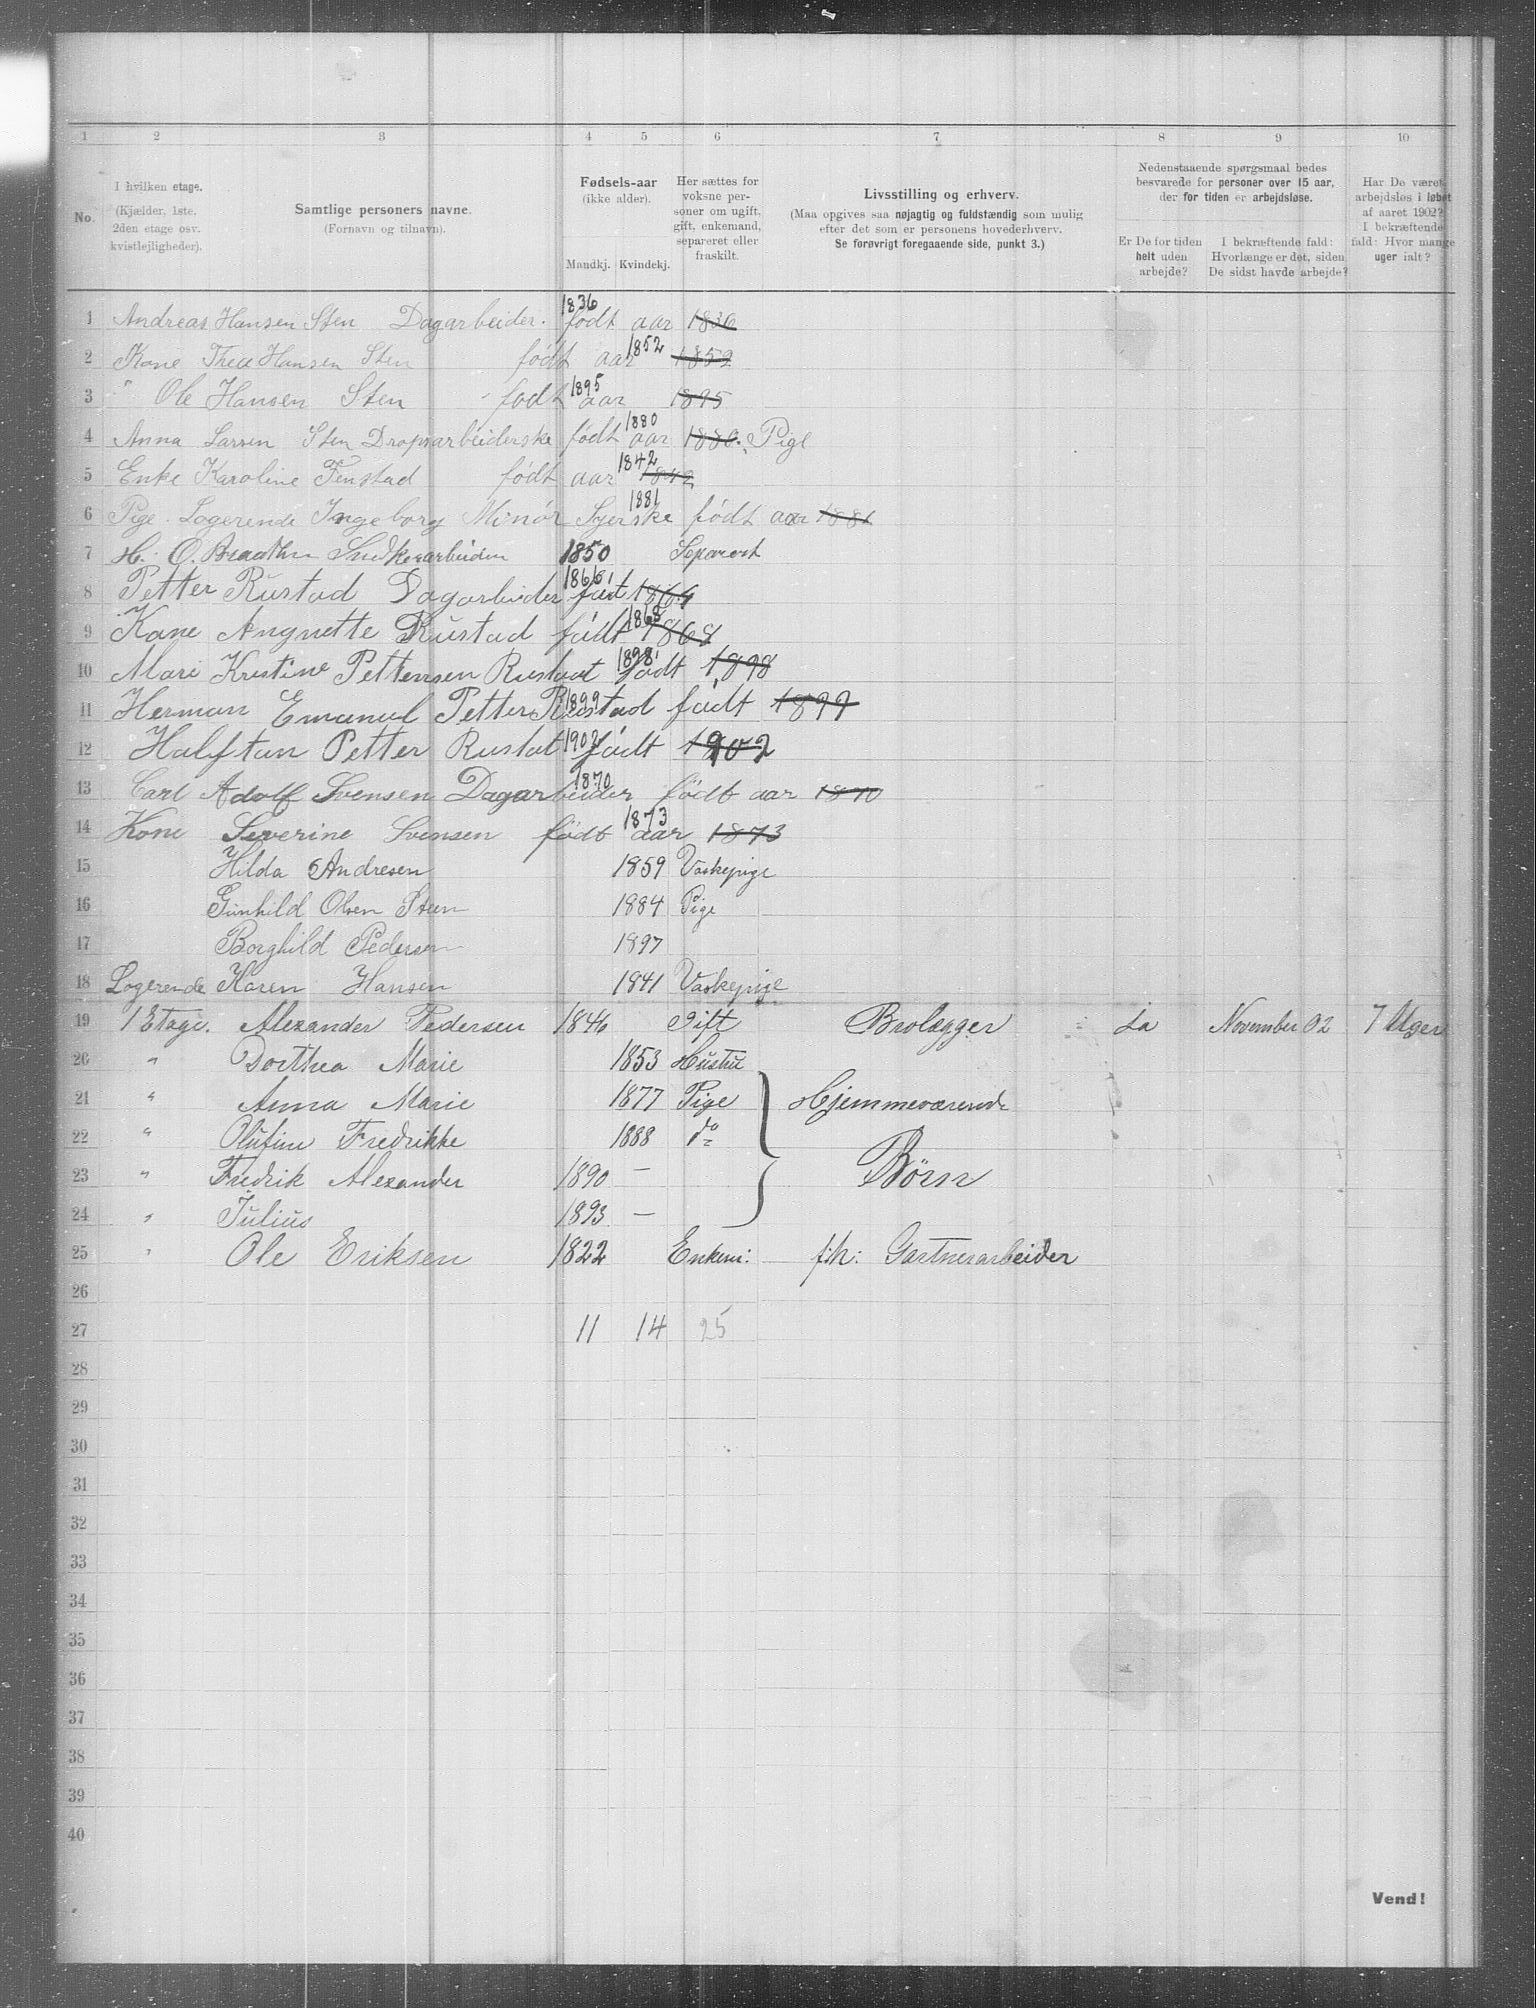 1 2 3 4 5 6 7 8 9 10
No.
I hvilken etage.
(Kjælder, 1ste. 2den etage osv. kvistlejligheder).
Samtlige personers navne.
(Fornavn og tilnavn).
Fødsels-aar
(ikke alder).
Mandkj. Kvindekj.
Her sættes for voksne personer om ugift, gift, enkemand, separeret eller fraskilt.
Livsstilling og erhverv.
(Maa opgives saa nøjagtig og fuldstændig som mulig
efter det som er personens hovederhverv.
Se forøvrigt foregaaende side, punkt 3.)
Nedenstaaende spørgsmaal bedes
besvarede for personer over 15 aar,
der for tiden er arbejdsløse.
Er De for tiden helt uden arbejde?
I bekræftende fald: Hvorlænge er det, siden De sidst havde arbejde?
Har De været arbejdsløs i løbet af aaret 1902? I bekræftende fald: Hvor mange uger ialt?
1 Andreas Hansen Sten Dagarbeider. 1836 født aar 1836
2 Kone Thea Hansen Sten født aar 1852 1852
3 " Ole Hansen Sten født 1895 aar 1895
4 Anna Larsen Sten Dropsarbeiderske født aar 1880 1880. Pige
5 Enke Karoline Finstad født aar 1842 1842
6 Pige. Logerende Ingeborg Minór Syerske 1881 født aar 1881
7 H. O. Braathen Snedkerarbeider 1850 Separert
8 Petter Rustad Dagarbeider 1866 født 1864
9 Kone Angnette Rustad født 1868 1868
10 Mari Kristine Pettersen Rustad 1898 født 1898
11 Herman Emanuel Petter Rustad 1899 født 1899
12 Halftan Petter Rustat 1902 født 1902
13 Carl Adolf Svensen Dagarbeider 1870 født aar 1870
14 Kone Severine Svensen født 1873 aar 1873
15 Hilda Andresen 1859 Vaskepige
16 Gunhild Olsen Steen 1884 Pige
17 Borghild Pedersen 1897
18 Logerende Karen Hansen 1841 Vaskepige
19 1 Etage. Alexander Pedersen 1846 Gift Brolægger Ja November 02 7 Uger
20 " Dorthea Marie 1853 Hustru
21 " Anna Marie 1877 Pige Hjemmeværende
22 " Olufine Fredrikke 1888 do
23 " Fredrik Alexander 1890 — Børn
24 " Julius 1893 —
25 " Ole Eriksen 1822 Enkem: f:h: Gartnerarbeider
26
27 11 14 25
28
29
30
31
32
33
34
35
36
37
38
39
40
Vend!